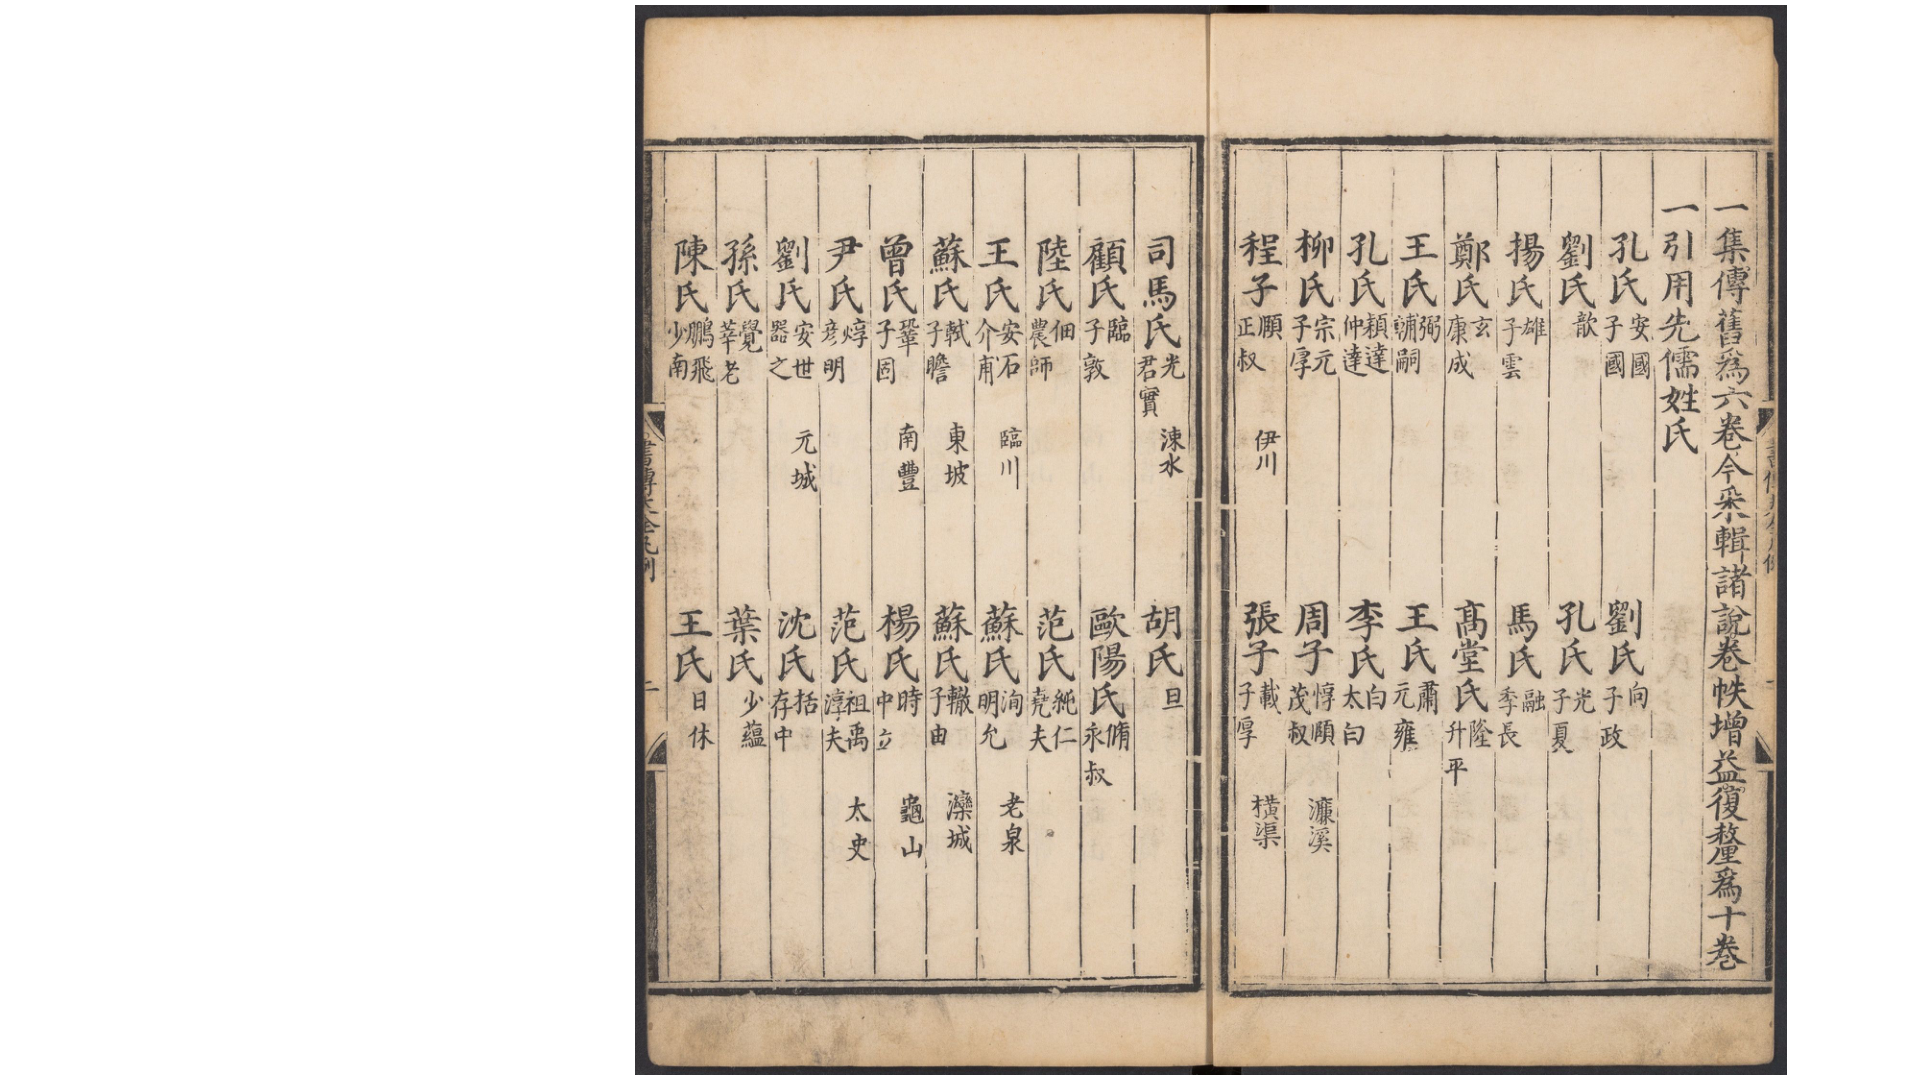 一集傳舊爲六卷今采輯諸說卷帙增益復釐爲十卷
一引用先儒姓氏
孔氏 安國 子國 劉氏 向 子政
劉氏 歆 孔氏 光 子夏
揚氏 雄 子雲 馬氏 融 季長
鄭氏 玄 康成 高堂氏 隆 升平
王氏 弼 輔嗣 王氏 肅 元雍
孔氏 穎達 仲達 李氏 白 太白
柳氏 宗元 子厚 周子 惇頤 茂叔 濂溪
程子 頤 正叔 伊川 張子 載 子厚 橫渠
司馬氏 光 君實 涑水 胡氏 旦
顧氏 臨 子敦 歐陽氏 脩 永叔
陸氏 佃 農師 范氏 純仁 堯夫
王氏 安石 介甫 臨川 蘇氏 洵 明允 老泉
蘇氏 軾 子瞻 東坡 蘇氏 轍 子由 灤城
曾氏 鞏 子固 南豐 楊氏 時 中立 龜山
尹氏 焞 彥明 范氏 祖禹 淳夫 太史
劉氏 安世 器之 元城 沈氏 括 存中
孫氏 覺 莘老 葉氏 少蘊
陳氏 鵬飛 少南 王氏 日休
書傳大全凡例 二